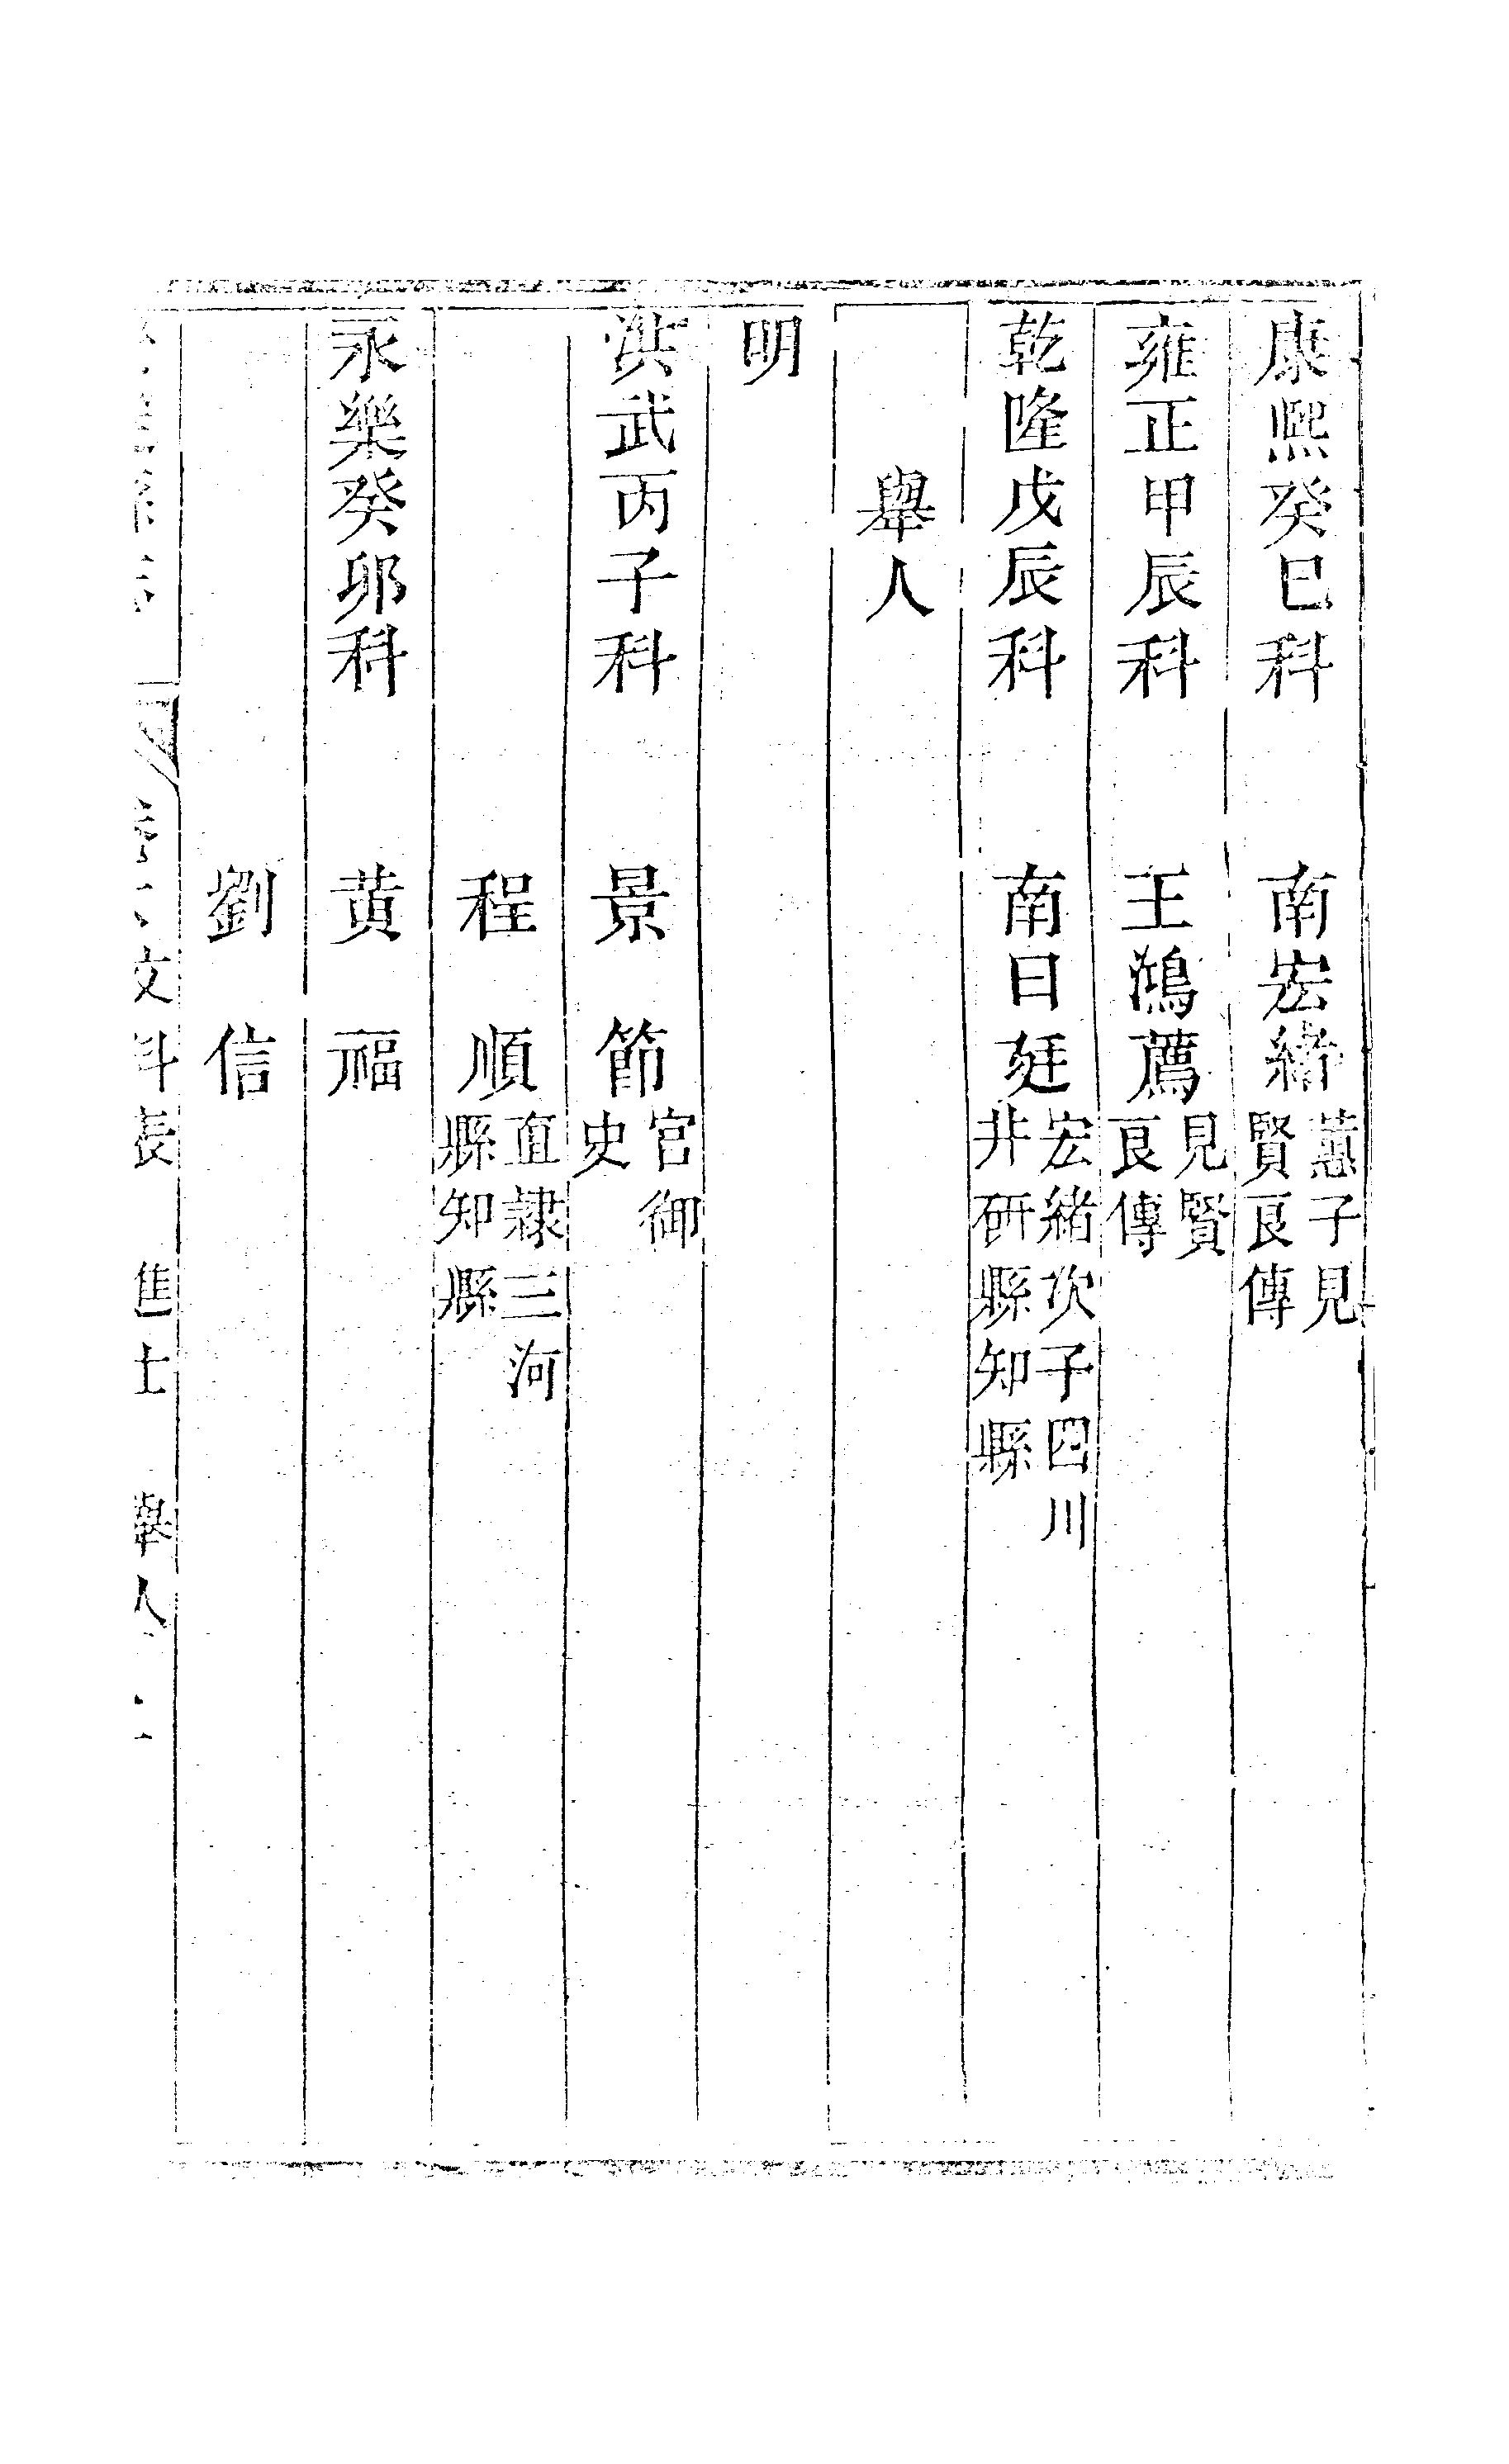 康熙癸巳科　南宏緒蕙子見賢良傳
雍正甲辰科　王鴻薦見賢良傳
乾隆戊辰科　南曰廷宏緒次子四川井研縣知縣
舉人
明
洪武丙子科　景節官御史
程順直隸三河縣知縣
永樂癸卯科　黃福
劉信
文科表　進士　舉人